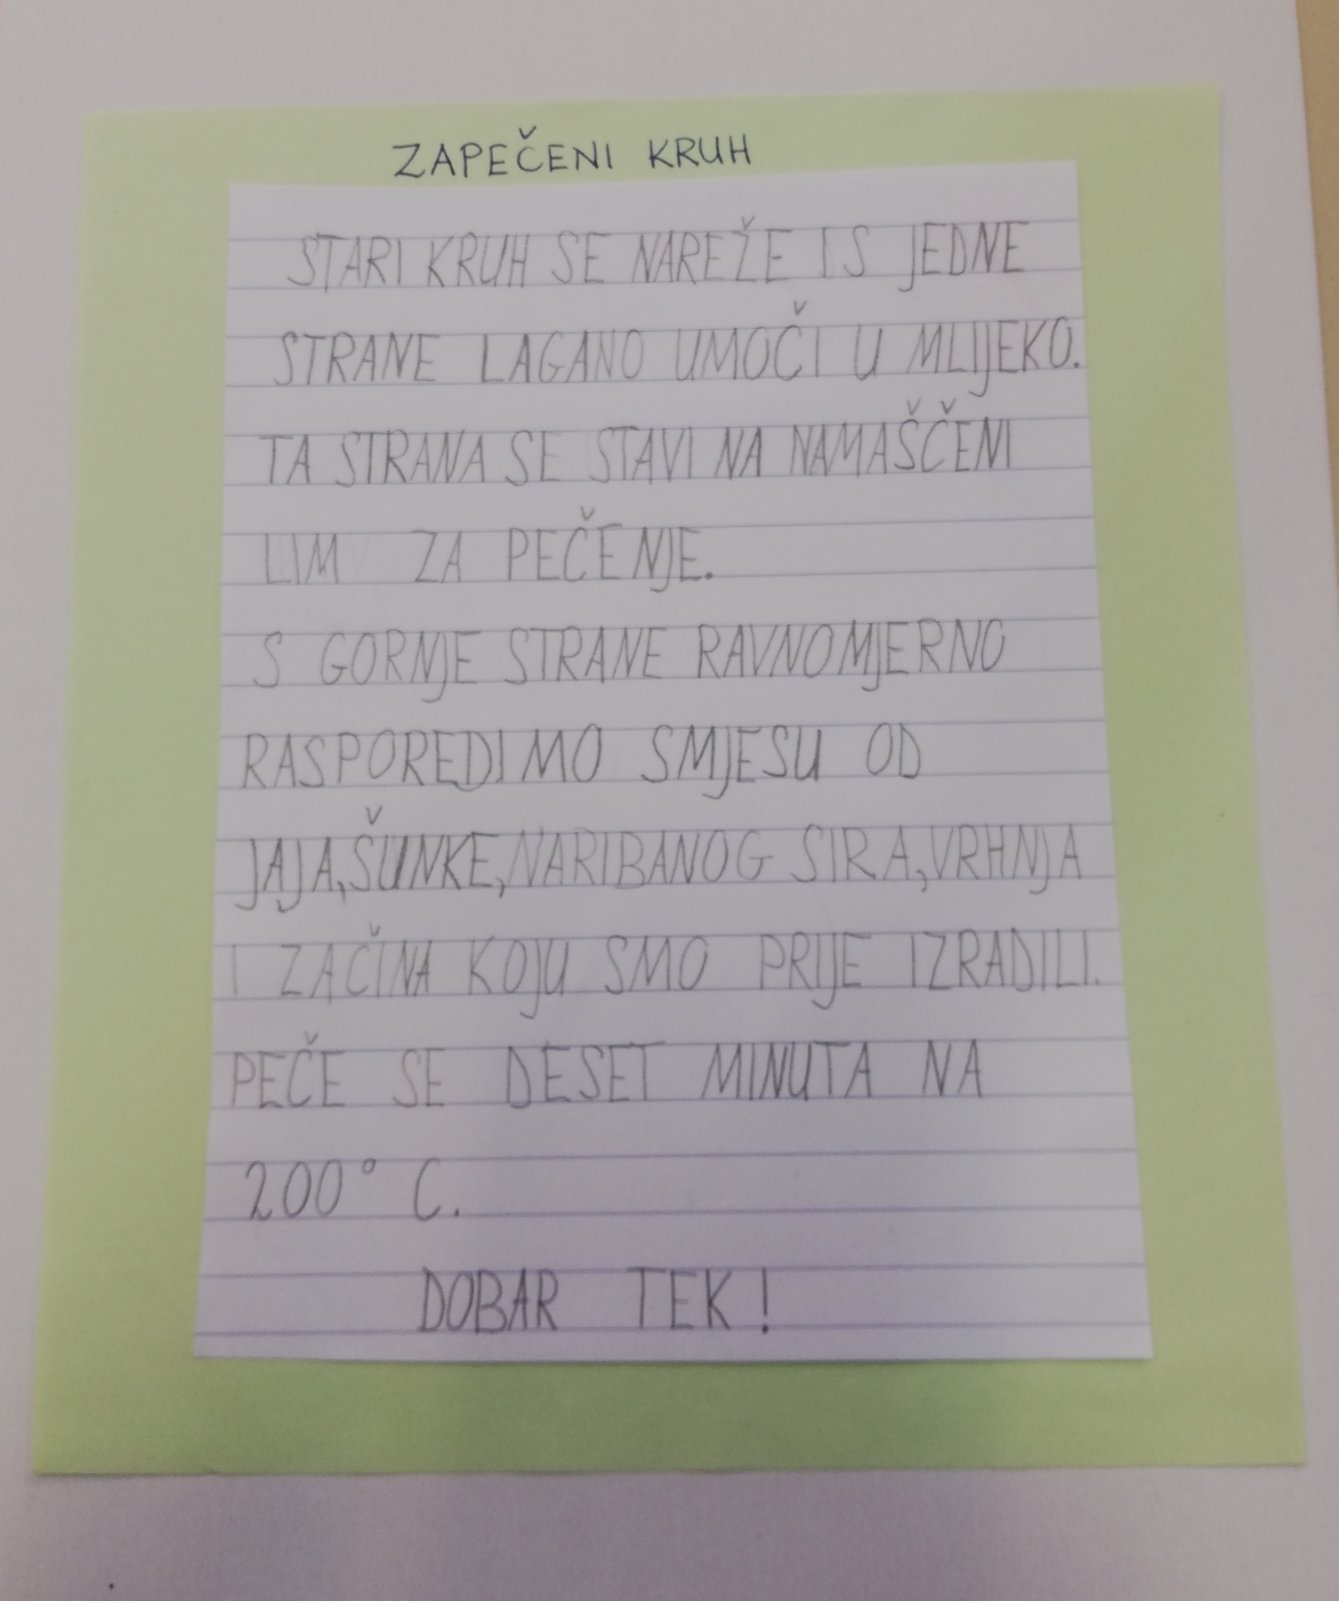 ZAPEČENI KRUH
STARI KRUH SE NAREŽE I S JEDNE
STRANE LAGANO UMOČI U MLIJEKO.
TA STRANA SE STAVI NA NAMAŠČENI
LIM ZA PEČENJE.
S GORNJE STRANE RAVNOMJERNO
RASPOREDIMO SMJESU OD
JAJA, ŠUNKE, NARIBANOG SIRA, VRHNJA
I ZAČINA KOJU SMO PRIJE IZRADILI.
PEČE SE DESET MINUTA NA
200° C.
DOBAR TEK!